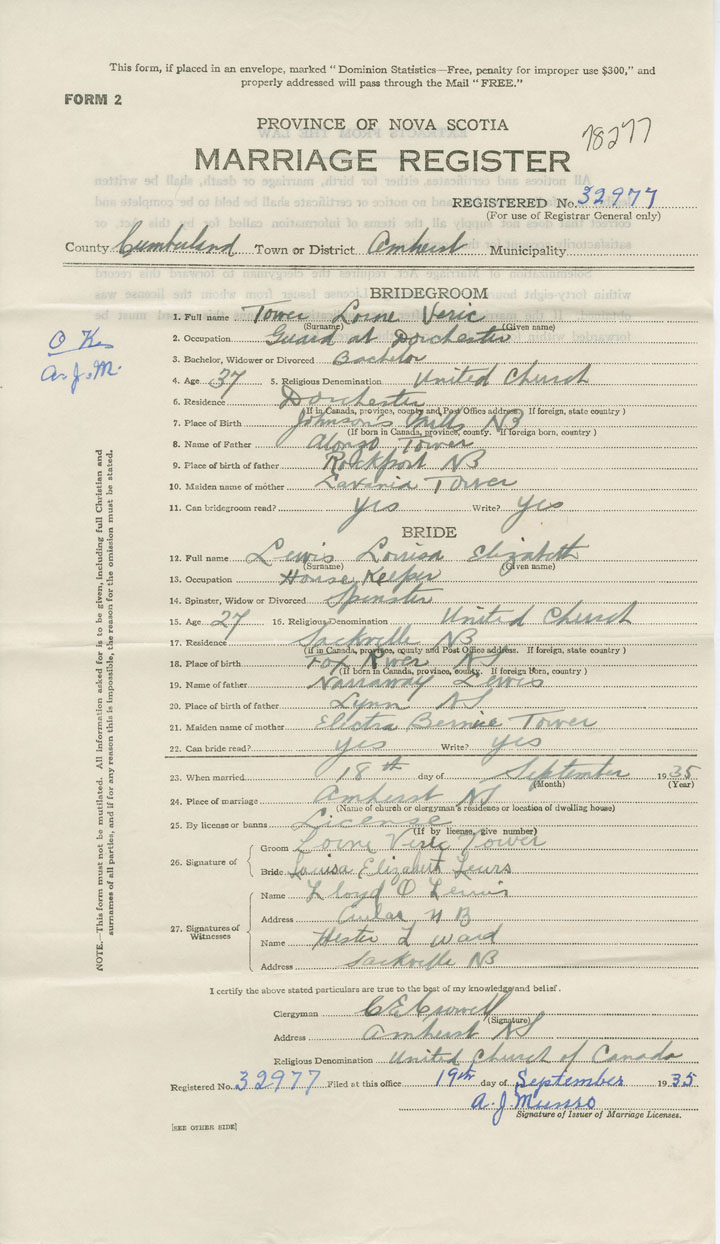 This form, if placed in an envelope, marked "Dominion Statistics—Free, penalty for improper use $300," and
properly addressed will pass through the Mail "FREE."
FORM 2
PROVINCE OF NOVA SCOTIA
78277
MARRIAGE REGISTER
REGISTERED No. 32977
(For use of Registrar General only)
County Cumberland Town or District Amherst Municipality
BRIDEGROOM
O K
A. J. M.
1. Full name Tower Lorne Veric
(Surname) (Given name)
2. Occupation Guard at Dorchester
3. Bachelor, Widower or Divorced Bachelor
4. Age 37 5. Religious Denomination United Church
6. Residence Dorchester
(If in Canada, province, county and Post Office address. If foreign, state country)
7. Place of Birth Johnson's Mills NB
(If born in Canada, province, county. If foreign born, country)
8. Name of Father Alonzo Tower
9. Place of birth of father Rockport NB
10. Maiden name of mother Lavinia Tower
11. Can bridegroom read? yes Write? yes
BRIDE
12. Full name Lewis Louisa Elizabeth
(Surname) (Given name)
13. Occupation House Keeper
14. Spinster, Widow or Divorced Spinster
15. Age 27 16. Religious Denomination United Church
17. Residence Sackville NB
(If in Canada, province, county and Post Office address. If foreign, state country)
18. Place of birth Fox River NS
(If born in Canada, province, county. If foreign born, country)
19. Name of father Narraway Lewis
20. Place of birth of father Lynn NS
21. Maiden name of mother Bernice Tower
22. Can bride read? yes Write? yes
23. When married 18th day of September 1935
(Month) (Year)
24. Place of marriage Amherst NS
(Name of church or clergyman's residence or location of dwelling house)
25. By license or banns License
(If by license, give number)
26. Signature of
Groom Lorne Veric Tower
Bride Louisa Elizabeth Lewis
27. Signatures of Witnesses
Name Lloyd O Lewis
Address N B
Name Hester L Ward
Address Sackville NB
I certify the above stated particulars are true to the best of my knowledge and belief.
Clergyman C E Crowell
(Signature)
Address Amherst NS
Religious Denomination United Church of Canada
Registered No. 32977 Filed at this office 19th day of September 1935
A. J. Munro
Signature of Issuer of Marriage Licenses.
[SEE OTHER SIDE]
NOTE.—This form must not be mutilated. All information asked for is to be given, including full Christian and
surnames of all parties, and if for any reason this is impossible, the reason for the omission must be stated.